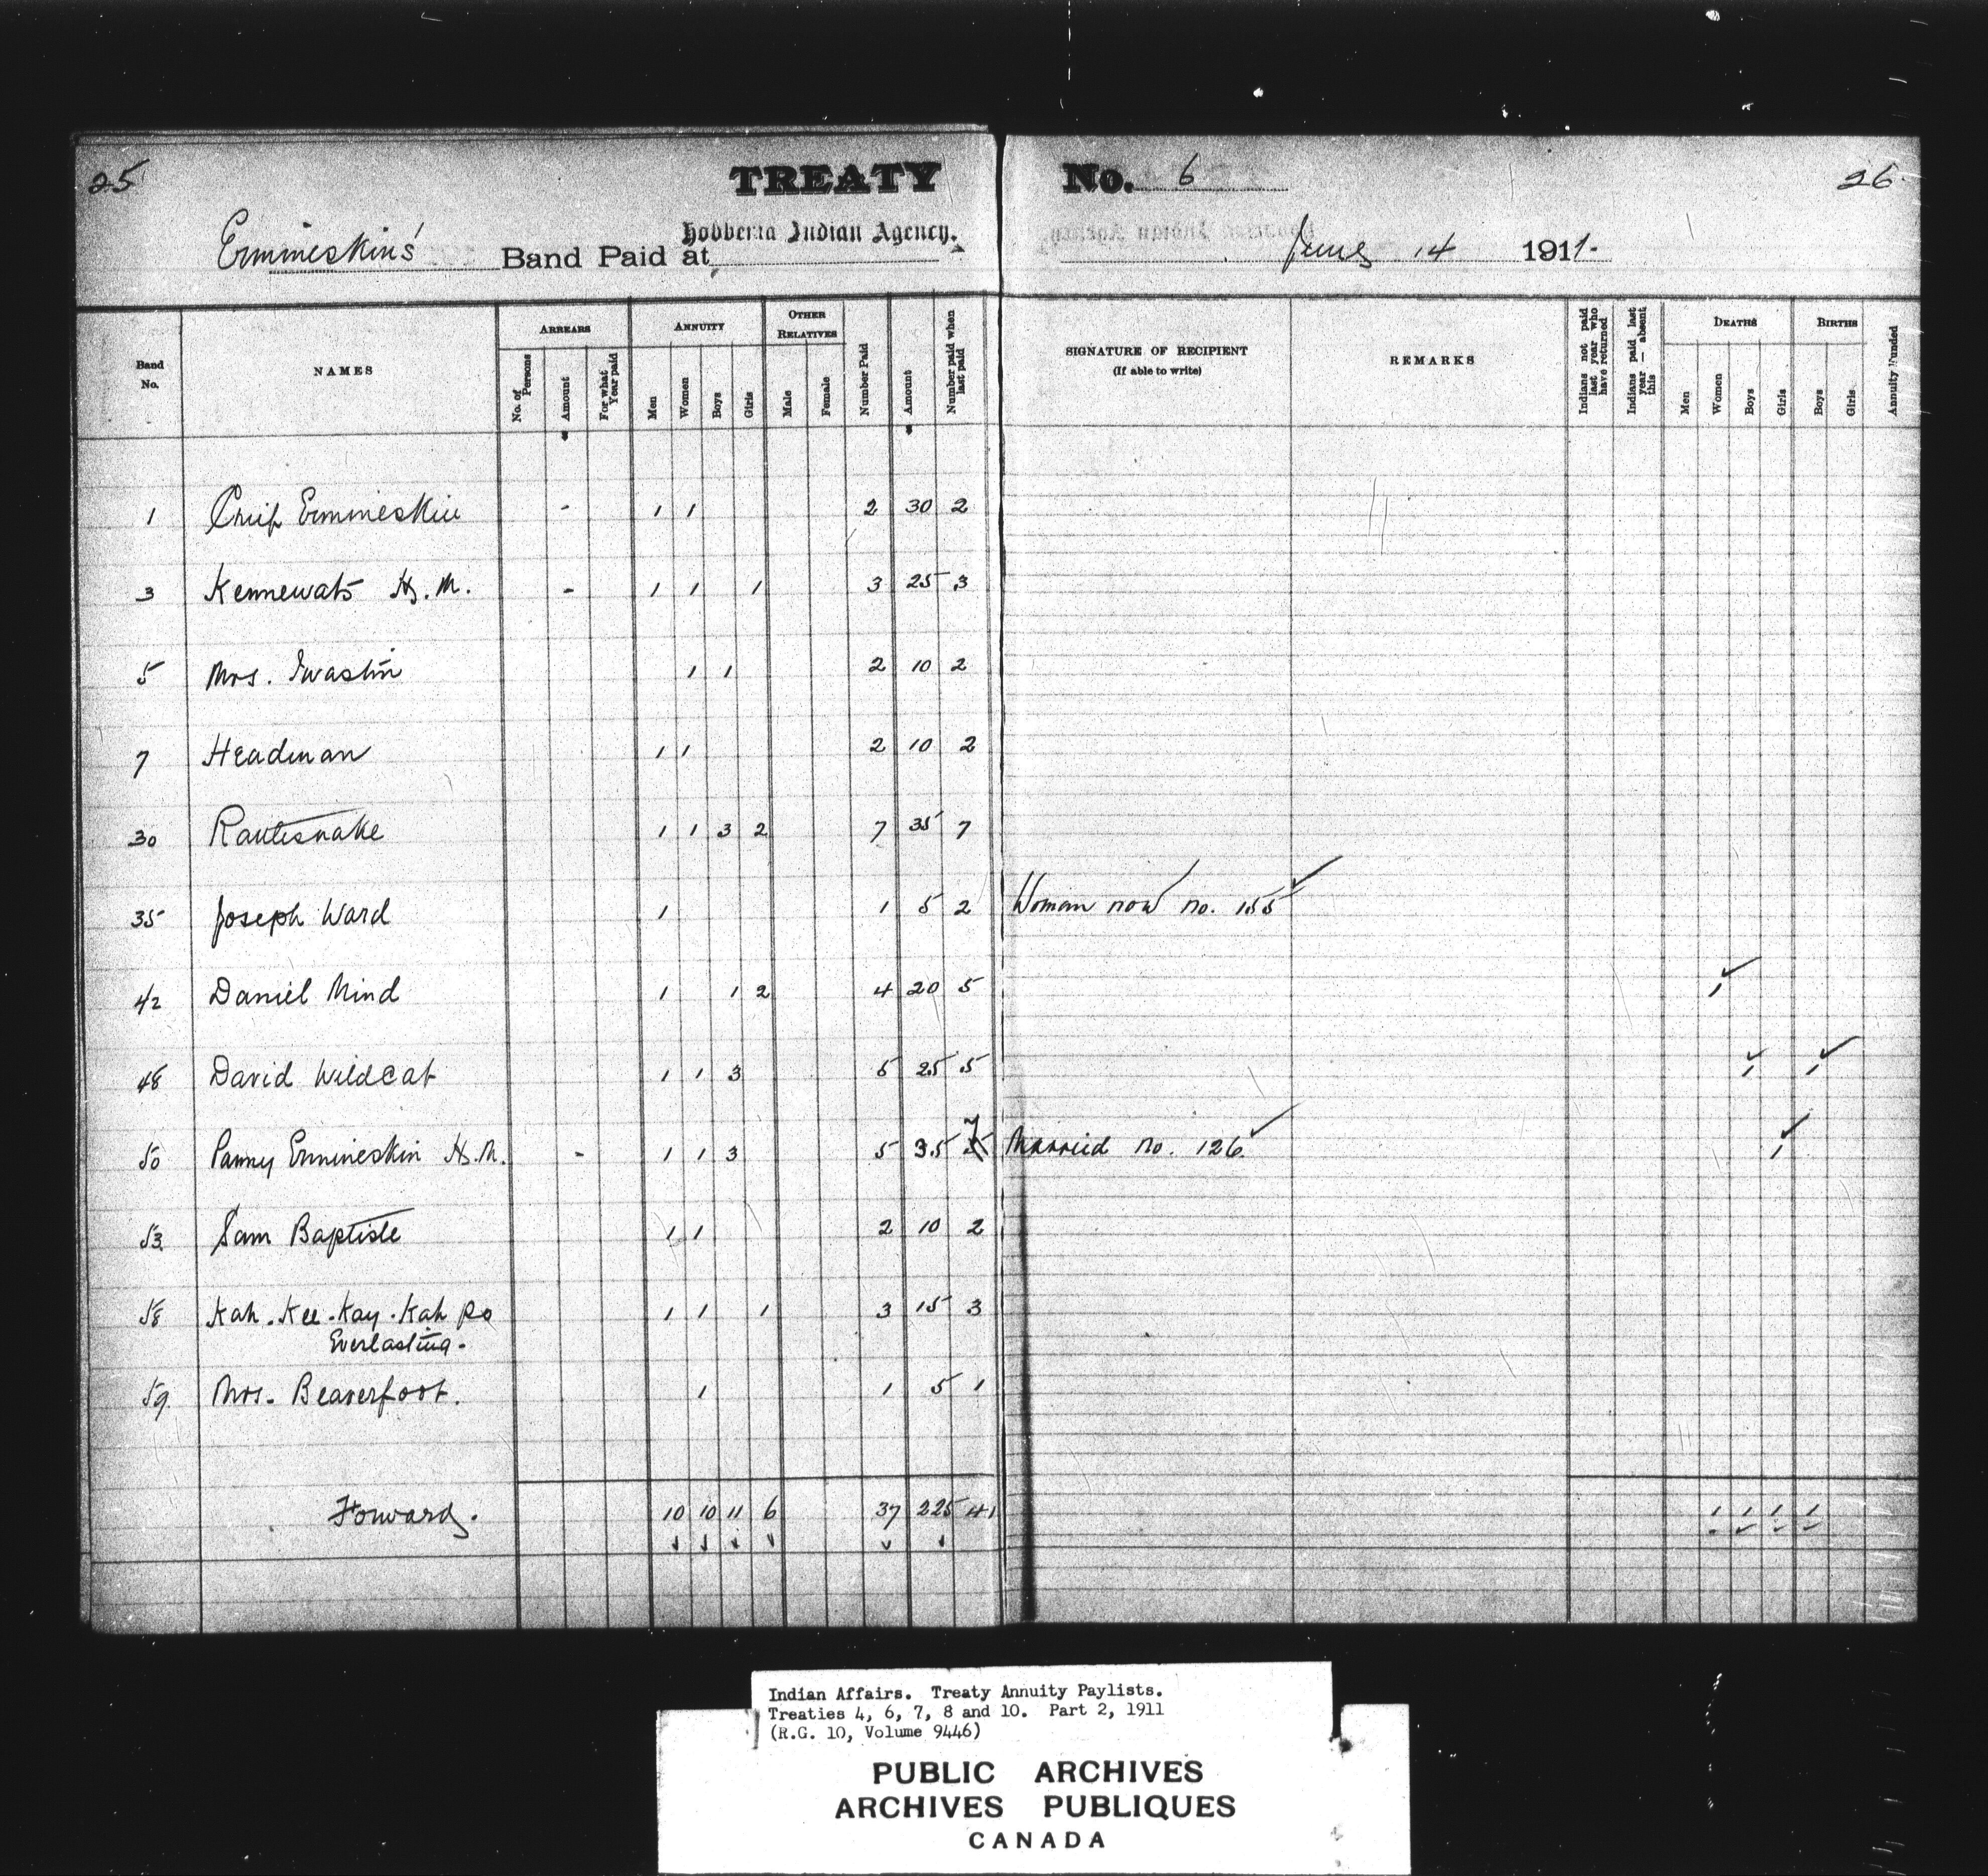 25 TREATY No. 6 26
Ermineskin's Band Paid at Hobbema Indian Agency. June 14 1911.
Band No. NAMES ARREARS ANNUITY OTHER RELATIVES Number Paid Amount Number paid when last paid SIGNATURE OF RECIPIENT (If able to write) REMARKS Indians not paid last year who have returned Indians paid last year — absent this DEATHS BIRTHS Annuity Funded
No. of Persons Amount For what Year paid Men Women Boys Girls Male Female Men Women Boys Girls Boys Girls
1 Chief Ermineskin - 1 1 2 30 2
3 Kennewats H.M. - 1 1 1 3 25 3
5 Mrs. Iwastin 1 1 2 10 2
7 Headman 1 1 2 10 2
30 Rattlesnake 1 1 3 2 7 35 7
35 Joseph Ward 1 1 5 2 Woman now no. 155 ✓
42 Daniel Mind 1 1 2 4 20 5 ✓ 1
48 David Wildcat 1 1 3 5 25 5 ✓ 1 ✓ 1
50 Panny Ermineskin H.M. - 1 1 3 5 35 7 Married no. 126 ✓ ✓ 1
53 Sam Baptiste 1 1 2 10 2
58 Kah-Kee-Kay-Kah po 1 1 1 3 15 3
Everlasting.
59 Mrs. Beaverfoot. 1 1 5 1
Forward. 10 10 11 6 37 225 41 1 1 1 1
Indian Affairs. Treaty Annuity Paylists.
Treaties 4, 6, 7, 8 and 10. Part 2, 1911
(R.G. 10, Volume 9446)
PUBLIC ARCHIVES
ARCHIVES PUBLIQUES
CANADA